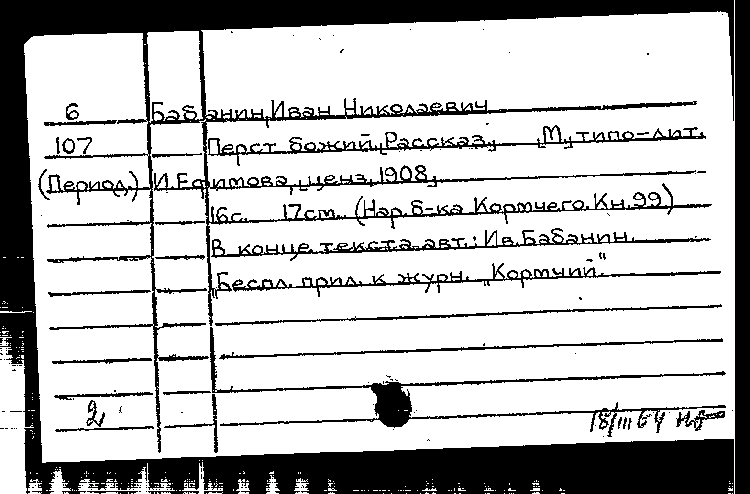 6 Бабанин, Иван Николаевич
107 Перст божий. Рассказ. М., типо-лит.
(Период.) И.Ефимова, ценз. 1908.
16с. 17cm. (Нар. б-ка Кормчего. Кн. 99)
В конце текста авт.: Ив. Бабанин.
"Беспл. прил. к журн. „Кормчий"
2
18/III 64